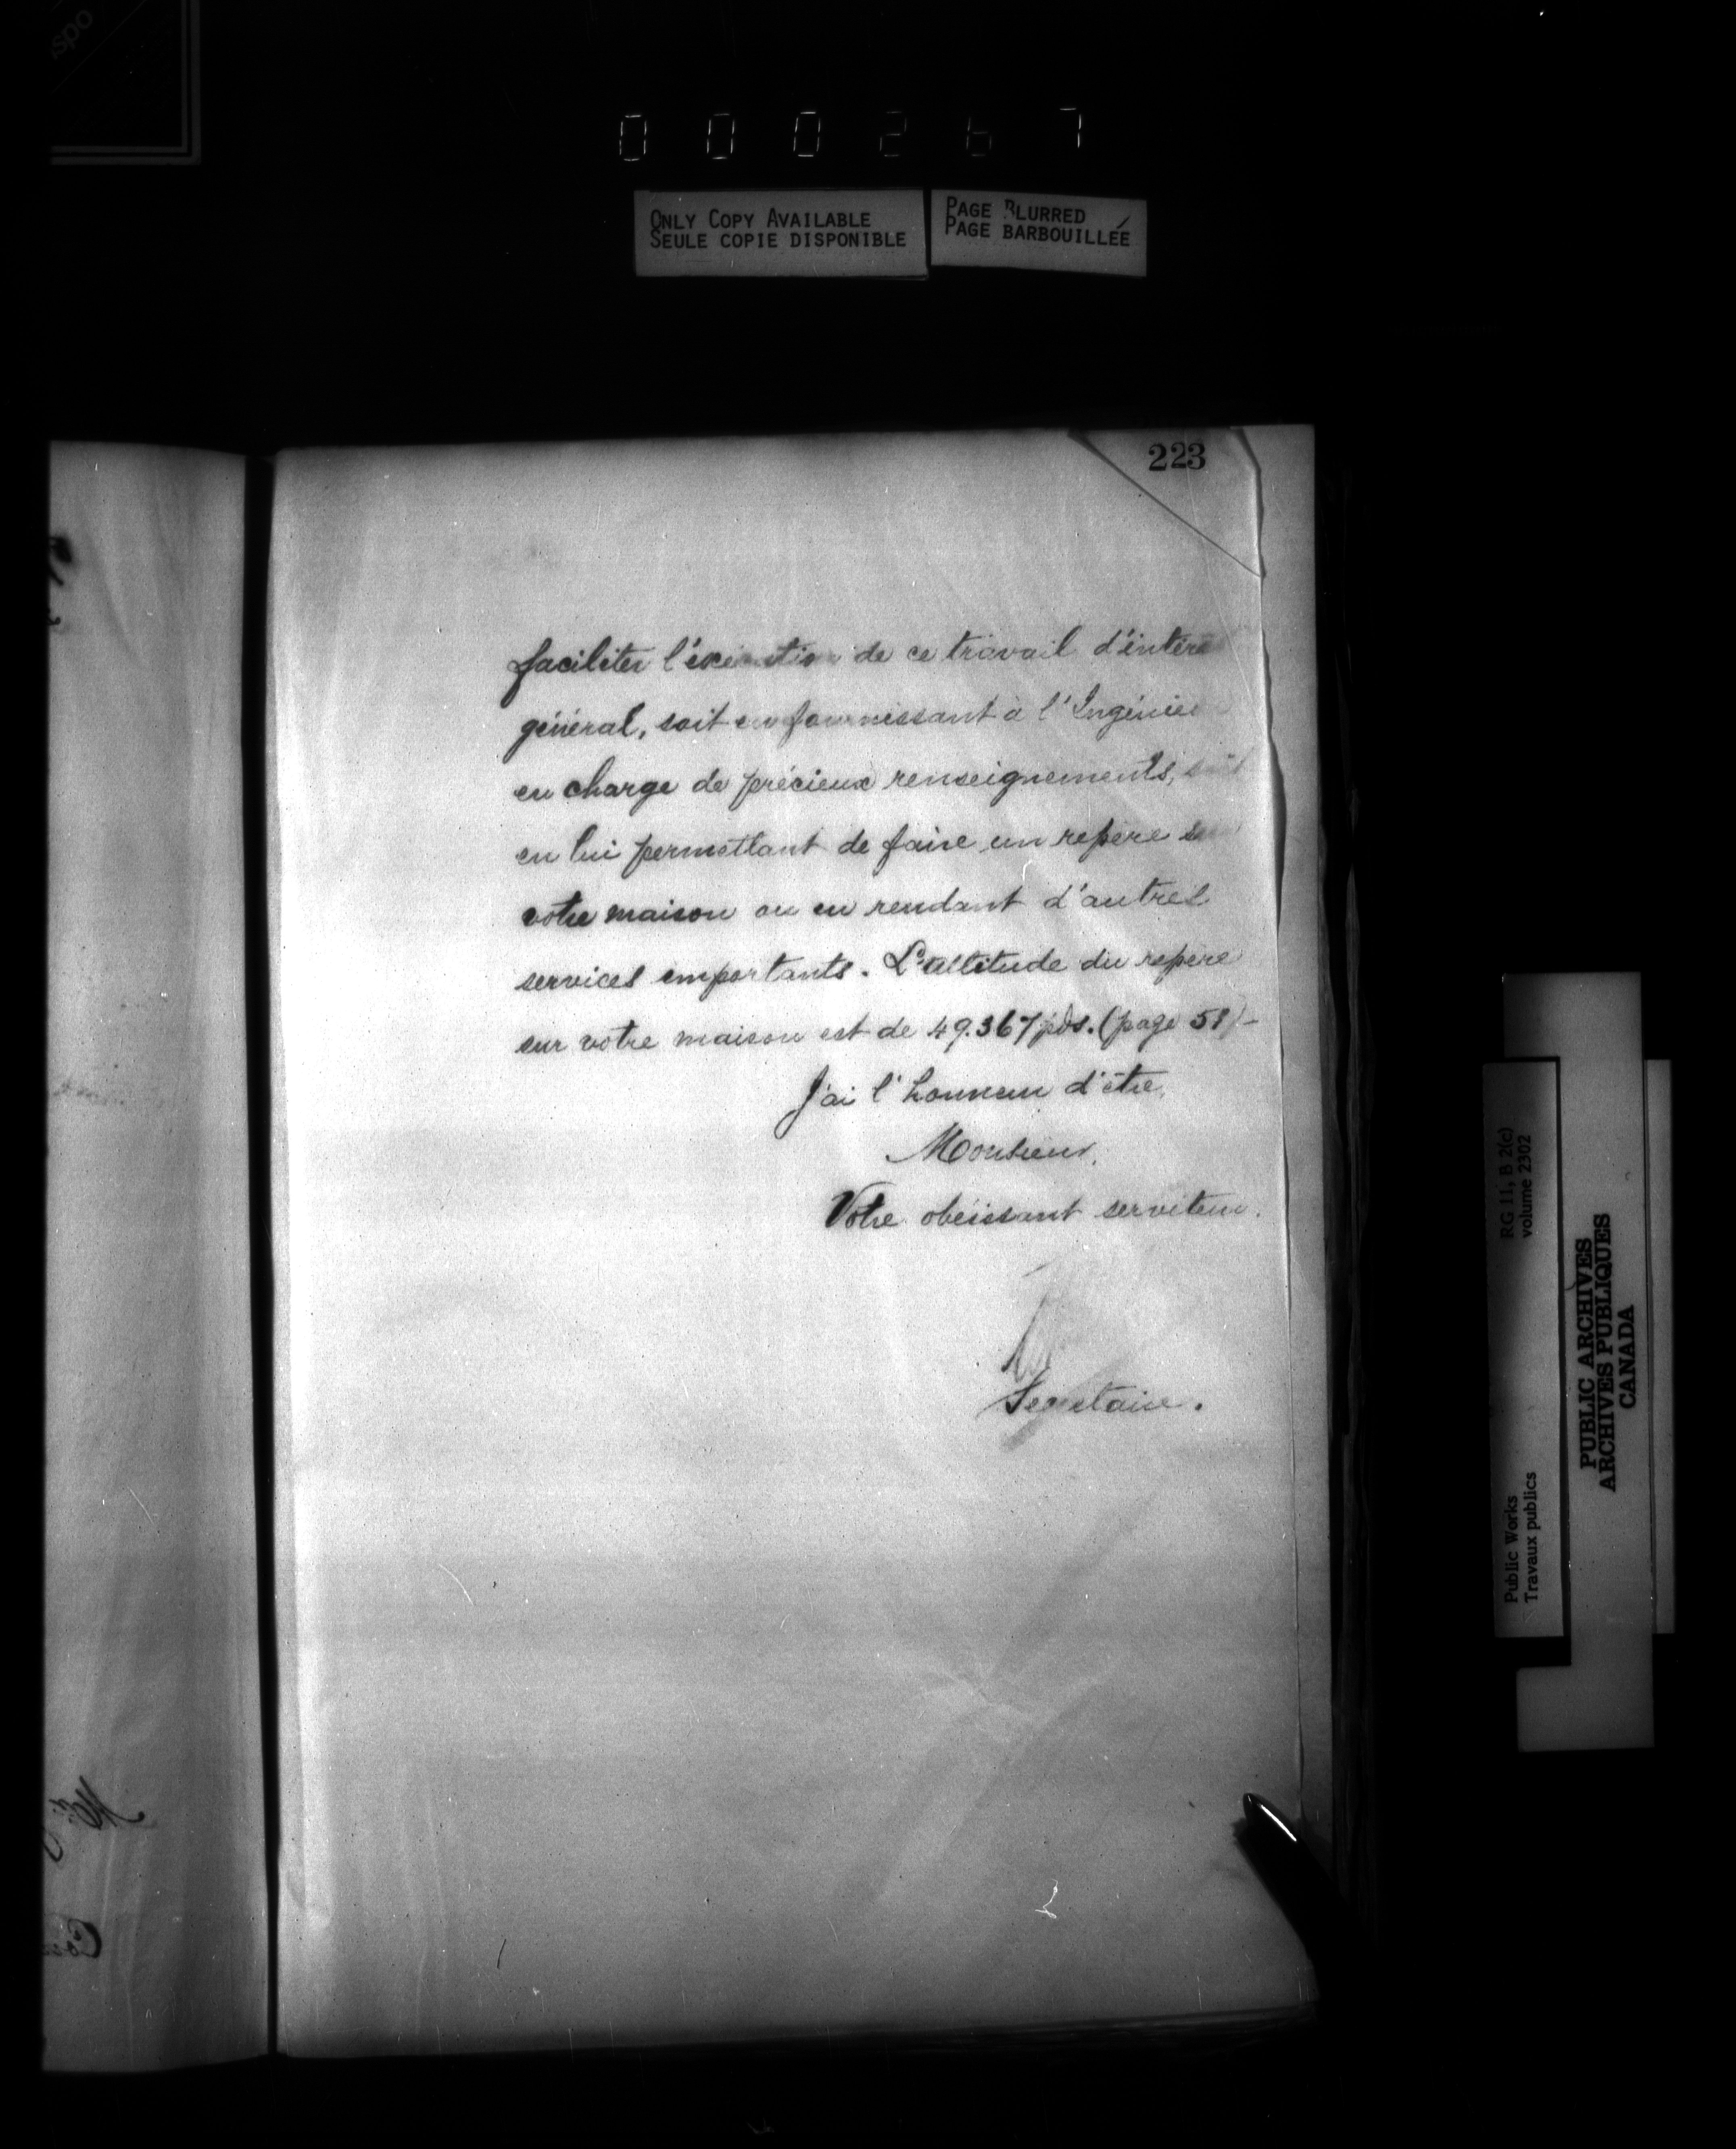 000267
ONLY COPY AVAILABLE
SEULE COPIE DISPONIBLE
PAGE BLURRED
PAGE BARBOUILLÉE
223
faciliter l'exécution de ce travail d'intérêt
général, soit en fournissant à l'Ingénieur
en charge de précieux renseignements, soit
en lui permettant de faire un repère sur
votre maison ou en rendant d'autres
services importants. L'altitude du repère
sur votre maison est de 49.367 pds. (page 58)-
J'ai l'honneur d'être,
Monsieur,
Votre obéissant serviteur.
Secrétaire.
RG 11, B 2(c)
volume 2302
Public Works
Travaux publics
PUBLIC ARCHIVES
ARCHIVES PUBLIQUES
CANADA